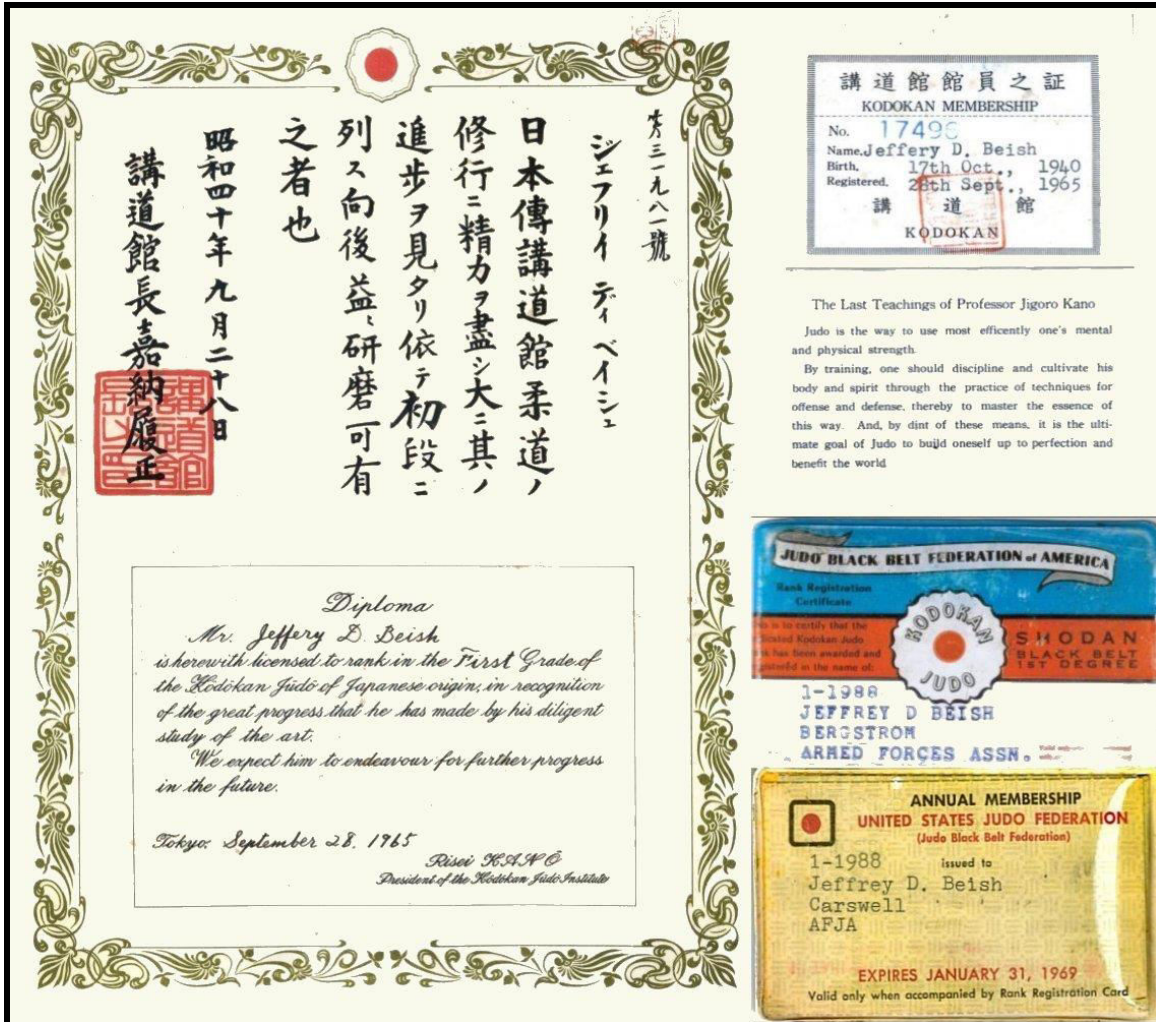 第三一九八一號
ジェフリイ ディ ベイシェ
日本傳講道館柔道ノ
修行ニ精力ヲ盡シ大ニ其ノ
進歩ヲ見タリ依テ初段ニ
列ス向後益〻研磨可有
之者也
昭和四十年九月二十八日
講道館長嘉納履正
Diploma
Mr. Jeffery D. Beish
is herewith licensed to rank in the First Grade of
the Kōdōkan Jūdō of Japanese origin, in recognition
of the great progress that he has made by his diligent
study of the art.
We expect him to endeavour for further progress
in the future.
Tokyo, September 28, 1965
Risei KANŌ
President of the Kōdōkan Jūdō Institute
講道館館員之証
KODOKAN MEMBERSHIP
No. 17496
Name. Jeffery D. Beish
Birth. 17th Oct., 1940
Registered. 28th Sept., 1965
講道館
KODOKAN
The Last Teachings of Professor Jigoro Kano
Judo is the way to use most efficently one's mental
and physical strength.
By training, one should discipline and cultivate his
body and spirit through the practice of techniques for
offense and defense, thereby to master the essence of
this way. And, by dint of these means, it is the ulti-
mate goal of Judo to build oneself up to perfection and
benefit the world
JUDO BLACK BELT FEDERATION of AMERICA
Rank Registration
Certificate
is to certify that the
Kodokan Judo
has been awarded and
in the name of:
KODOKAN
JUDO
SHODAN
BLACK BELT
1ST DEGREE
1-1988
JEFFREY D BEISH
BERGSTROM
ARMED FORCES ASSN.
ANNUAL MEMBERSHIP
UNITED STATES JUDO FEDERATION
(Judo Black Belt Federation)
1-1988 issued to
Jeffrey D. Beish
Carswell
AFJA
EXPIRES JANUARY 31, 1969
Valid only when accompanied by Rank Registration Card